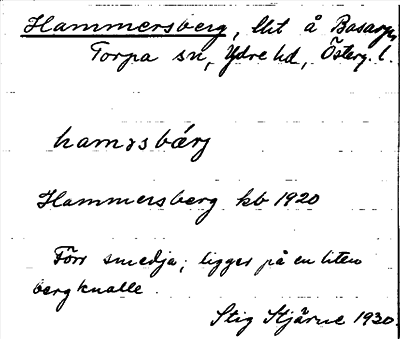 Hammersberg, lht å Basarps
Torpa sn, Ydre hd, Österg. l.
hamɔsbærj
Hammersberg kb 1920
Förr smedja; ligger på en liten
bergknalle.
Stig Stjärne 1930.